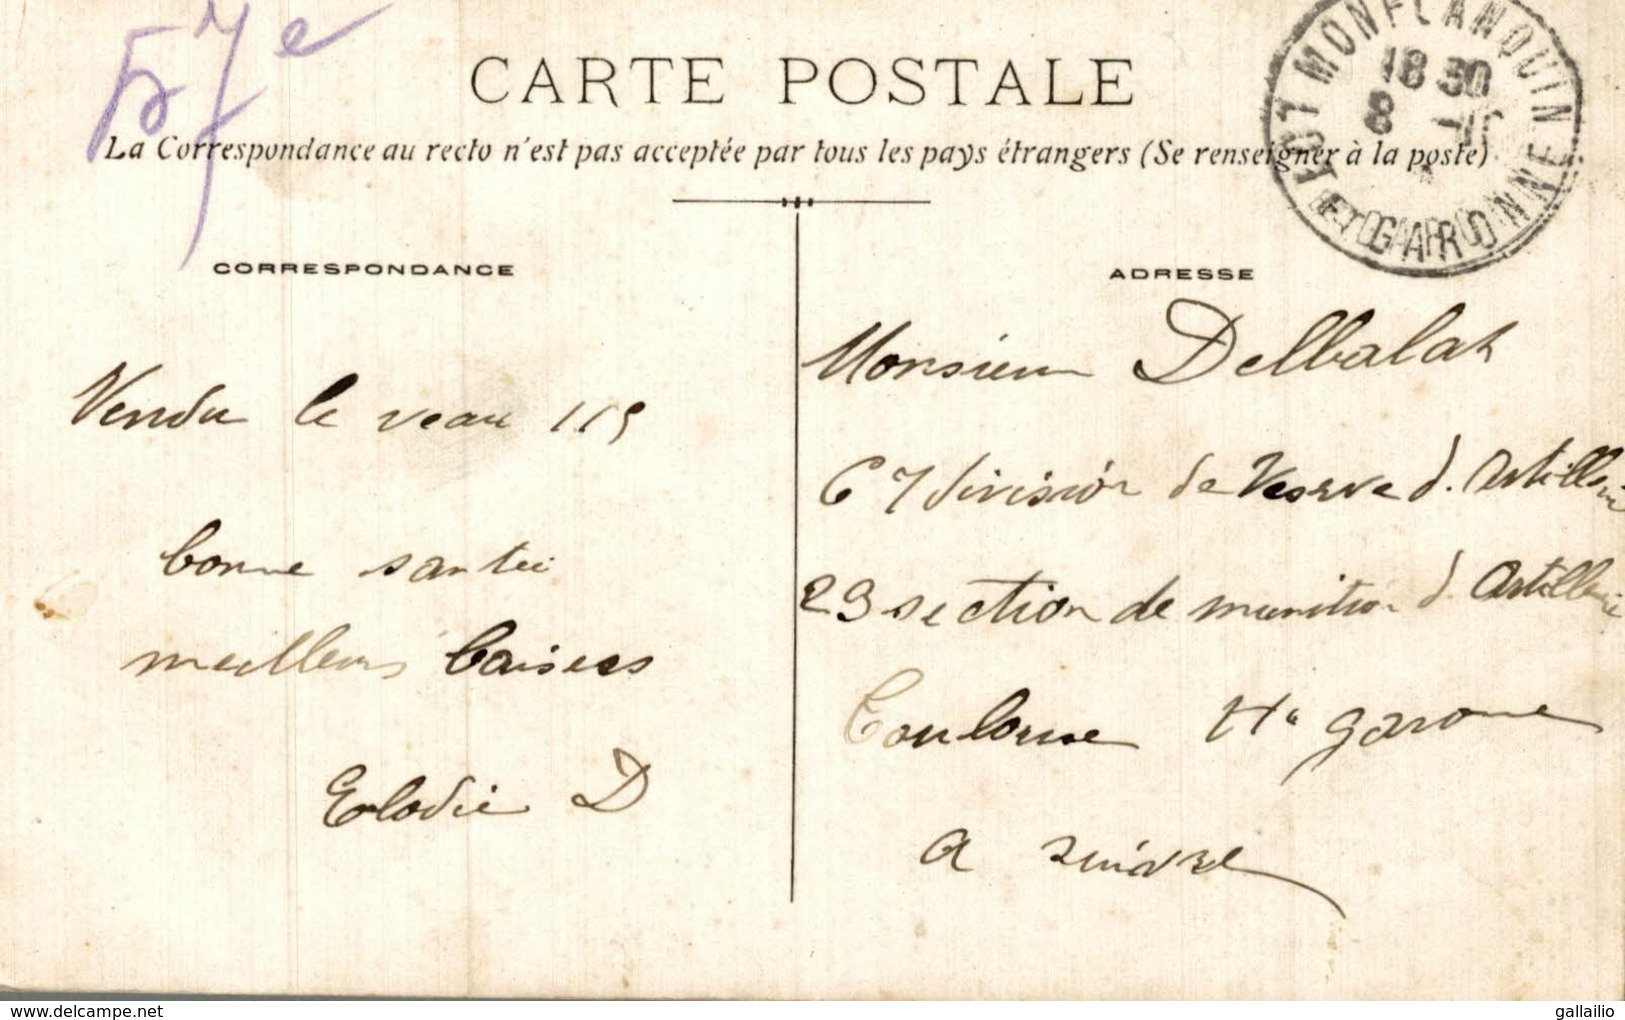 57e
CARTE POSTALE
La Correspondance au recto n'est pas acceptée par tous les pays étrangers (Se renseigner à la poste)
MONFLANQUIN
18 30
8
LOT ET GARONNE
CORRESPONDANCE
Vendu le veau 115
bonne santée
meilleurs baisers
Elodie D
ADRESSE
Monsieur Delbalat
67 division de reserve d. Artillerie
23 section de munition d Artillerie
Toulouse Hte garonne
a suivre
www.delcampe.net
gallailio